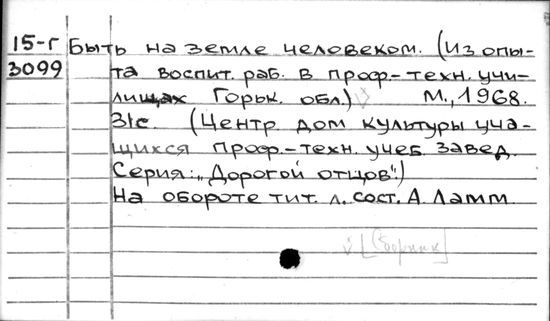 15-г Быть на земле человеком. (Из опы-
3099 та воспит. раб. в проф.-техн. учи-
лищах Горьк. обл.) М., 1968.
31с. (Центр. дом культуры уча-
щихся проф.-техн. учеб. завед.
Серия: „Дорогой отцов".)
На обороте тит. л. сост. А. Ламм
[Сборник]